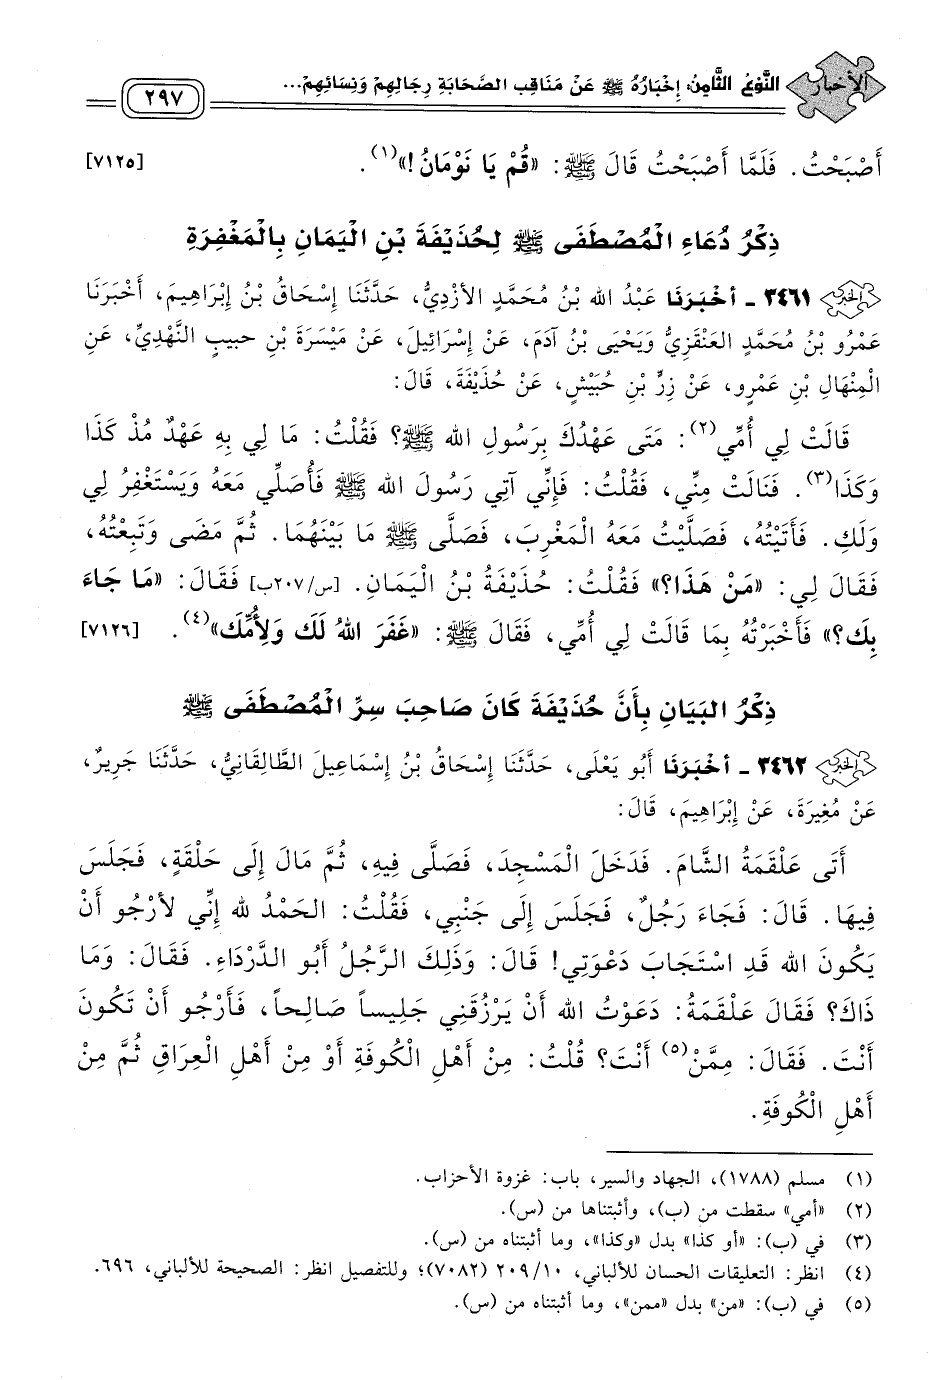 الأخبار
النَّوْعُ الثَّامِنُ: إِخْبَارُهُ ﷺ عَنْ مَنَاقِبِ الصَّحَابَةِ رِجَالِهِمْ وَنِسَائِهِمْ...
٢٩٧
أَصْبَحْتُ. فَلَمَّا أَصْبَحْتُ قَالَ ﷺ: «قُمْ يَا نَوْمَانُ!»(١). [٧١٢٥]
ذِكْرُ دُعَاءِ الْمُصْطَفَى ﷺ لِحُذَيْفَةَ بْنِ الْيَمَانِ بِالْمَغْفِرَةِ
٣٤٦١ - أَخْبَرَنَا عَبْدُ الله بْنُ مُحَمَّدٍ الأَزْدِيُّ، حَدَّثَنَا إِسْحَاقُ بْنُ إِبْرَاهِيمَ، أَخْبَرَنَا
عَمْرُو بْنُ مُحَمَّدٍ العَنْقَزِيُّ وَيَحْيَى بْنُ آدَمَ، عَنْ إِسْرَائِيلَ، عَنْ مَيْسَرَةَ بْنِ حبيبٍ النَّهْدِيِّ، عَنِ
الْمِنْهَالِ بْنِ عَمْرٍو، عَنْ زِرِّ بْنِ حُبَيْشٍ، عَنْ حُذَيْفَةَ، قَالَ:
قَالَتْ لِي أُمِّي(٢): مَتَى عَهْدُكَ بِرَسُولِ الله ﷺ؟ فَقُلْتُ: مَا لِي بِهِ عَهْدٌ مُذْ كَذَا
وَكَذَا(٣). فَنَالَتْ مِنِّي، فَقُلْتُ: فَإِنِّي آتِي رَسُولَ الله ﷺ فَأُصَلِّي مَعَهُ وَيَسْتَغْفِرُ لِي
وَلَكِ. فَأَتَيْتُهُ، فَصَلَّيْتُ مَعَهُ الْمَغْرِبَ، فَصَلَّى ﷺ مَا بَيْنَهُمَا. ثُمَّ مَضَى وَتَبِعْتُهُ،
فَقَالَ لِي: «مَنْ هَذَا؟» فَقُلْتُ: حُذَيْفَةُ بْنُ الْيَمَانِ. [س/٢٠٧ب] فَقَالَ: «مَا جَاءَ
بِكَ؟» فَأَخْبَرْتُهُ بِمَا قَالَتْ لِي أُمِّي، فَقَالَ ﷺ: «غَفَرَ اللهُ لَكَ وَلِأُمِّكَ»(٤). [٧١٢٦]
ذِكْرُ البَيَانِ بِأَنَّ حُذَيْفَةَ كَانَ صَاحِبَ سِرِّ الْمُصْطَفَى ﷺ
٣٤٦٢ - أَخْبَرَنَا أَبُو يَعْلَى، حَدَّثَنَا إِسْحَاقُ بْنُ إِسْمَاعِيلَ الطَّالِقَانِيُّ، حَدَّثَنَا جَرِيرٌ،
عَنْ مُغِيرَةَ، عَنْ إِبْرَاهِيمَ، قَالَ:
أَتَى عَلْقَمَةُ الشَّامَ. فَدَخَلَ الْمَسْجِدَ، فَصَلَّى فِيهِ، ثُمَّ مَالَ إِلَى حَلْقَةٍ، فَجَلَسَ
فِيهَا. قَالَ: فَجَاءَ رَجُلٌ، فَجَلَسَ إِلَى جَنْبِي، فَقُلْتُ: الحَمْدُ لله إِنِّي لأَرْجُو أَنْ
يَكُونَ الله قَدِ اسْتَجَابَ دَعْوَتِي! قَالَ: وَذَلِكَ الرَّجُلُ أَبُو الدَّرْدَاءِ. فَقَالَ: وَمَا
ذَاكَ؟ فَقَالَ عَلْقَمَةُ: دَعَوْتُ الله أَنْ يَرْزُقَنِي جَلِيساً صَالِحاً، فَأَرْجُو أَنْ تَكُونَ
أَنْتَ. فَقَالَ: مِمَّنْ(٥) أَنْتَ؟ قُلْتُ: مِنْ أَهْلِ الْكُوفَةِ أَوْ مِنْ أَهْلِ الْعِرَاقِ ثُمَّ مِنْ
أَهْلِ الْكُوفَةِ.
(١) مسلم (١٧٨٨)، الجهاد والسير، باب: غزوة الأحزاب.
(٢) «أمي» سقطت من (ب)، وأثبتناها من (س).
(٣) في (ب): «أو كذا» بدل «وكذا»، وما أثبتناه من (س).
(٤) انظر: التعليقات الحسان للألباني، ١٠/ ٢٠٩ (٧٠٨٢)؛ وللتفصيل انظر: الصحيحة للألباني، ٦٩٦.
(٥) في (ب): «من» بدل «ممن»، وما أثبتناه من (س).